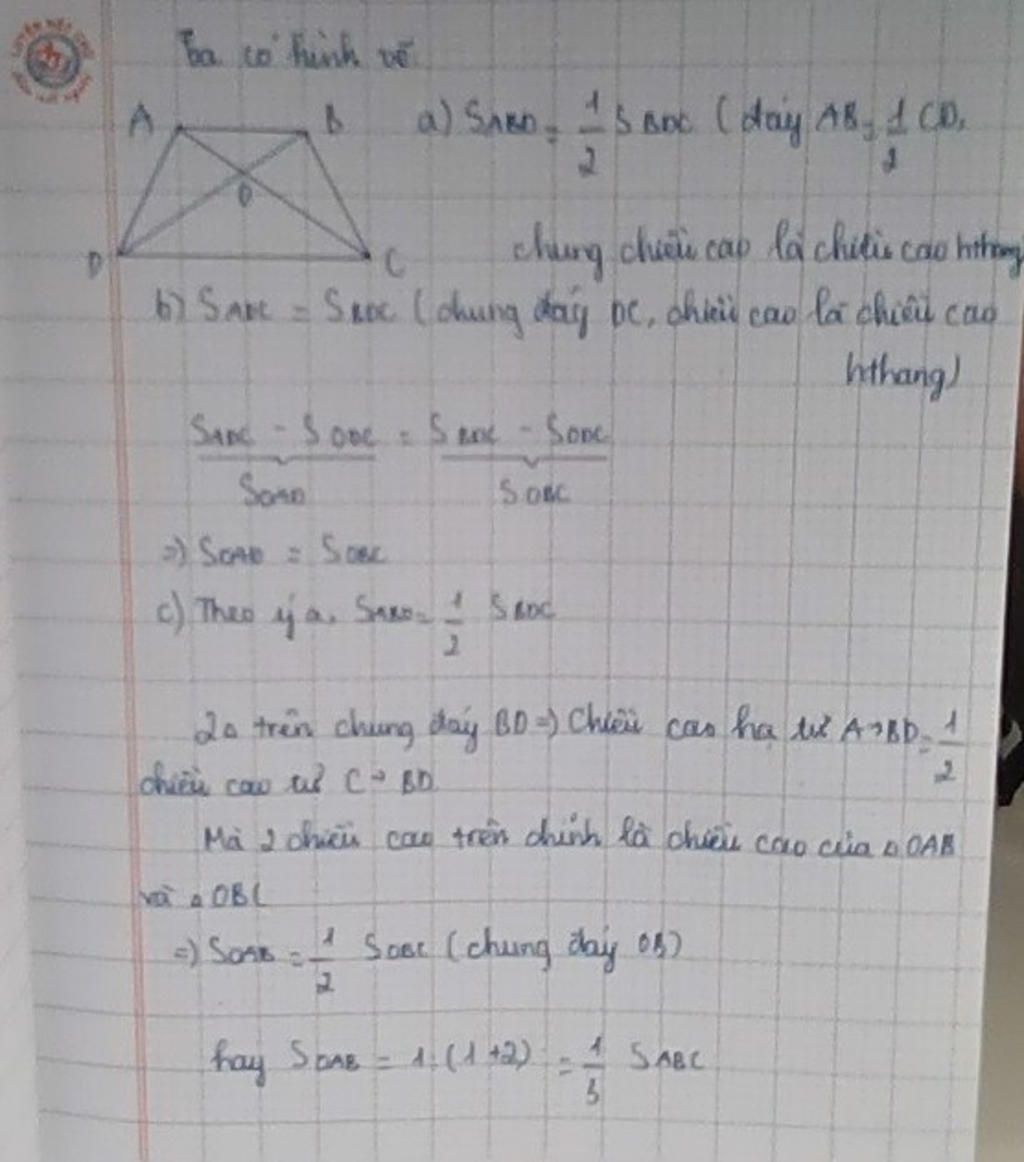 Ta có hình vẽ
A B a) SABD = 1/2 SBDC (đáy AB = 1/2 CD,
O
D C chung chiều cao là chiều cao hthang
b) SADC = SBDC (chung đáy DC, chiều cao là chiều cao
hthang)
SADC - SODC = SBDC - SODC
SOAD SOBC
=) SOAD = SOBC
c) Theo ý a, SABD = 1/2 SBDC
2∆ trên chung đáy BD =) Chiều cao hạ từ A→BD = 1/2
chiều cao từ C→BD
Mà 2 chiều cao trên chính là chiều cao của ∆OAB
và ∆OBC
=) SOAB = 1/2 SOBC (chung đáy OB)
hay SOAB = 1:(1+2) = 1/3 SABC